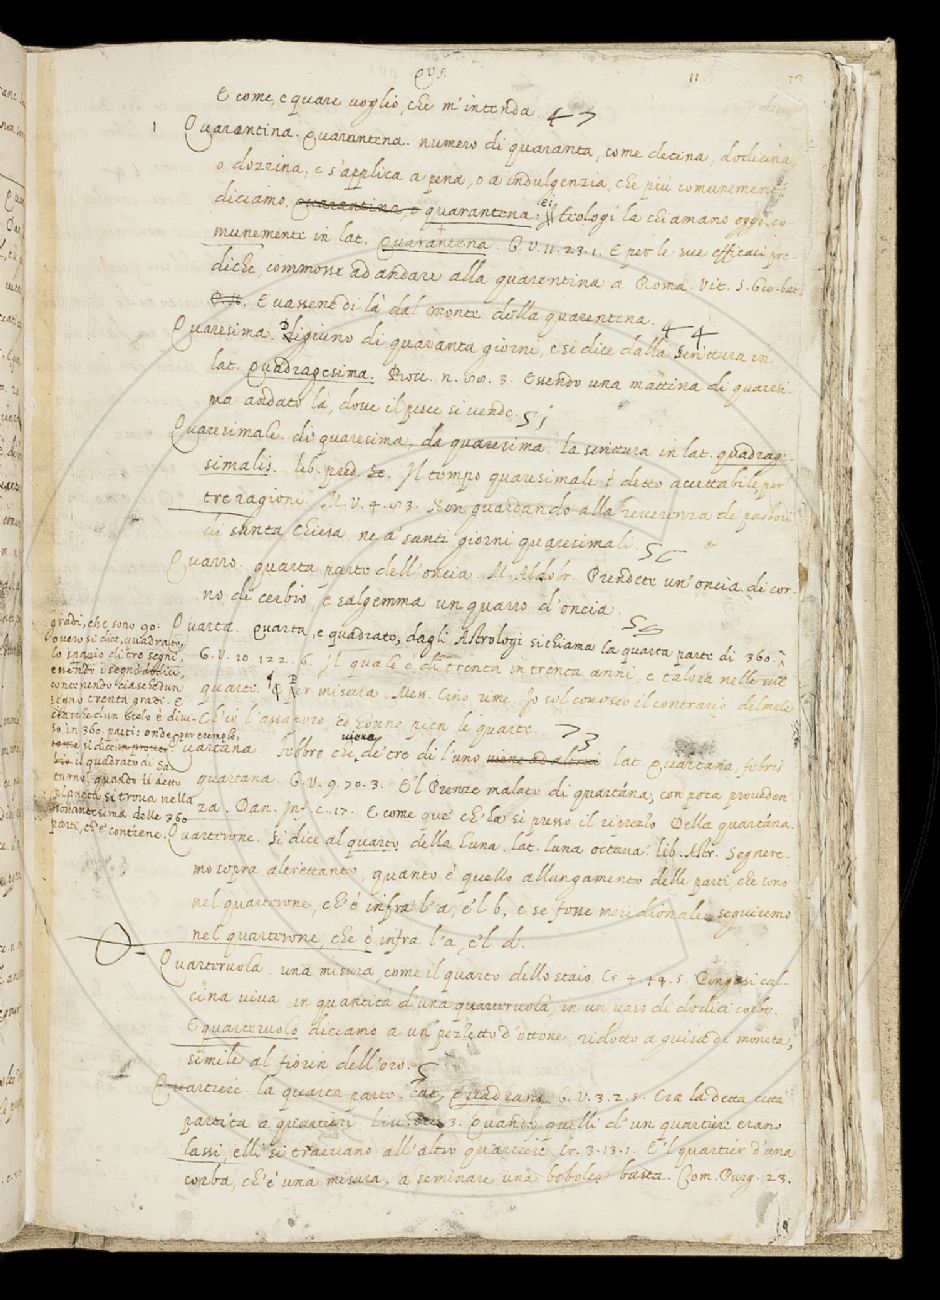 QVA 11. 13
E come, e quare voglio, che m'intenda. 47
1 Quarantina. Quarantena. numero di quaranta, come decina, dodicina,
o dozzina, e s'applica a pena, o a indulgenzia, che più comunement
diciamo, quarantina, o quarantena. ei Teologi la chiamano oggi co-
munemente in lat. Quarantena. G.V. 11. 23. 1. E per le sue efficaci pre-
diche, commosse ad andare alla quarentina a Roma. Vit. S. Gio. bat.
E vassene di là dal monte della quarentena. 44
Quaresima. Digiuno di quaranta giorni, e si dice dalla scrittura in
lat. Quadragesima. Bocc. n. 3. Essendo una mattina di quaresi-
ma andato là, dove il pesce si vende. 51
Quaresimale. di quaresima, da quaresima. la scrittura in lat. quadrage-
simalis. lib. pred. Il tempo quaresimale è detto accettabile, per
tre ragioni. M.V. 4. 3. Non guardando alla reverenza de' pastori
di santa Chiesa, ne a' santi giorni quaresimali.
Quarro. quarta parte dell'oncia. M. Aldobr. Prendete un'oncia di cor-
no di cerbio, e salgemma un quarro d'oncia.
Quarta. Quarta, e quadrato, dagli Astrologi si chiama la quarta parte di 360.
gradi, che sono 90.
overo si dice, quadrato,
lo spazio di tre segni,
essendo i segni dodici,
contenendo ciaschedun
segno trenta gradi. E
perche ciascun Cielo è divi-
so in 360 parti: onde, per esempio,
si dice
il quadrato di Sa-
turno, quando il detto
pianeta si trova nella
novantesima delle 360
parti, ch'e' contiene.
G.V. 10. 122. 6. Il quale è di trenta in trenta anni, e talora nelle sue
quarte. Per misura. Mess. Cino rime. Io sol conosco il contrario del mele
Ch'io l'assaporo, ed honne pien le quarte. 73
Quartana. Febbre che viene, de' tre dì l'uno. lat. Quartana febris
quartana. G.V. 9. 70. 3. E'l Prenze malato di quartána, con poca provveden
za. Dan. Inf. c. 17. E come que' ch'ha sì presso il riprezzo Della quartána.
Quartirone. Si dice al quarto della Luna. lat. luna octava. lib. Astr. Segnere-
mo sopra altrettanto, quanto è quello allungamento delle parti, che sono
nel quartirone, ch'è infra l'a, e'l b, e se fosse meridionale, seguiremo
nel quartirone, che è infra l'a, e'l d.
Quartiruola. una misura, come il quarto dello staio. Cr. 4. 44. 5. Pongasi cal-
cina viva in quantità d'una quartiruola, in un vaso di dodici corbe.
E quartiruolo diciamo a un pezzetto d'ottone, ridotto a guisa di moneta,
simile al fiorin dell'oro.
Quartiere. la quarta parte. lat. Quadrans. G.V. 3. 2. 5. Era la detta città
partita a quartieri. Liv. 3. Quando quelli d'un quartiere erano
lassi, elli si traevano all'altro quartiere. Cr. 3. 13. 1. E'l quartier d'una
corba, ch'è una misura, a seminare una bobolca basta. Com. Purg. 23.